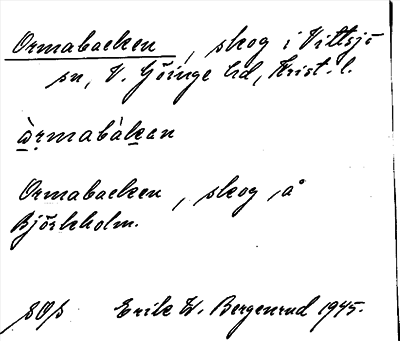 Ormabacken, skog i Vittsjö
sn, V. Göinge hd, Krist. l.
ὰrmabàkan
Ormabacken, skog, å
Björkholm.
Erik W. Bergenrud 1945.